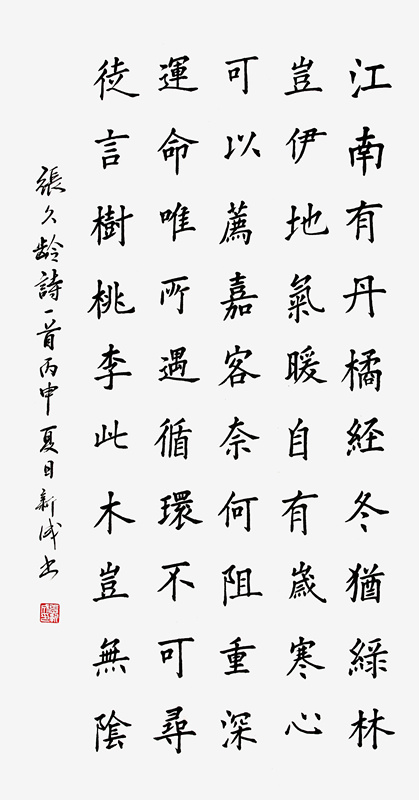 江南有丹橘経冬猶緑林
豈伊地氣暖自有歳寒心
可以薦嘉客奈何阻重深
運命唯所遇循環不可尋
徒言樹桃李此木豈無陰
張久齡詩一首丙申夏日新成书